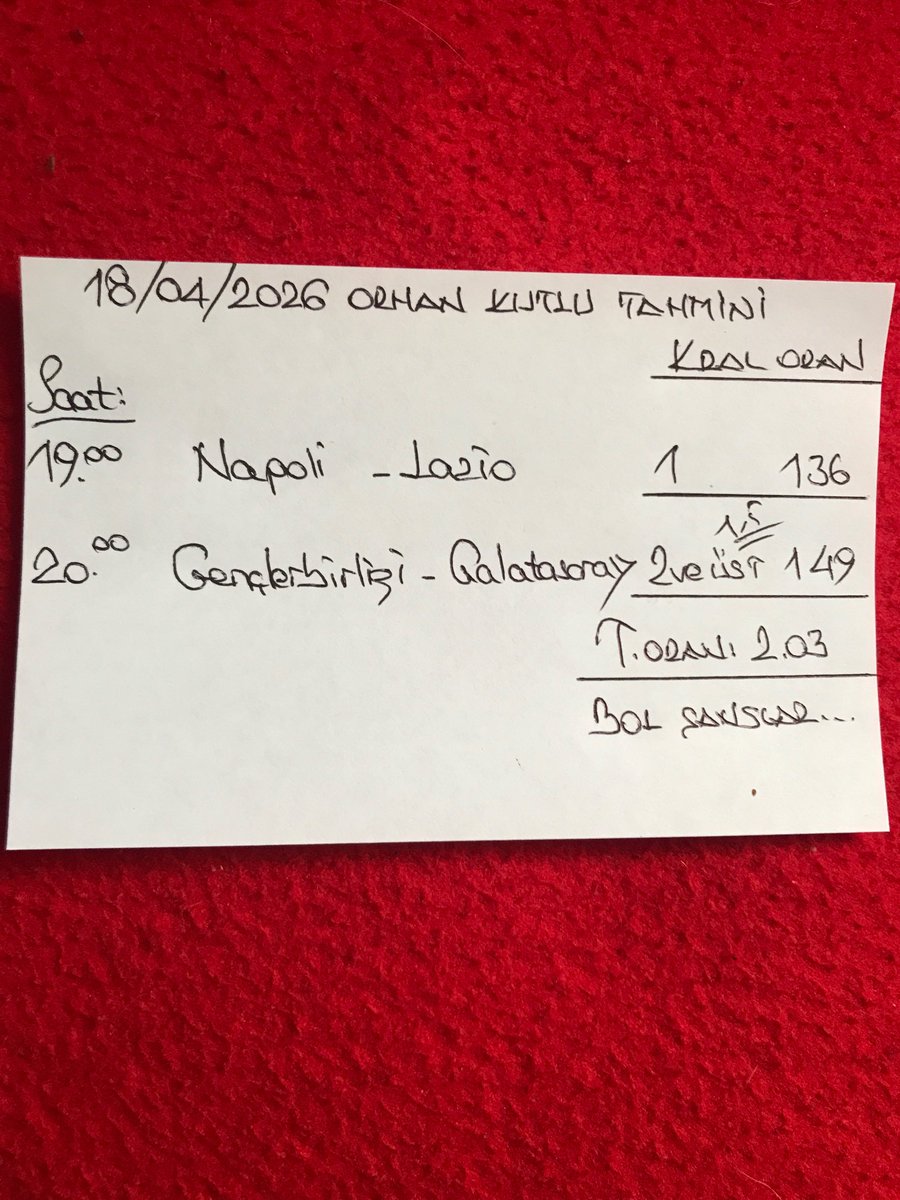 18/04/2026 ORHAN KUTLU TAHMİNİ
KRAL ORAN
Saat:
19.00 Napoli - Lazio 1 136
1,5
20.00 Gençlerbirligi - Galatasaray 2 ve üst 149
T.ORANI 2.03
BOL ŞANSLAR...